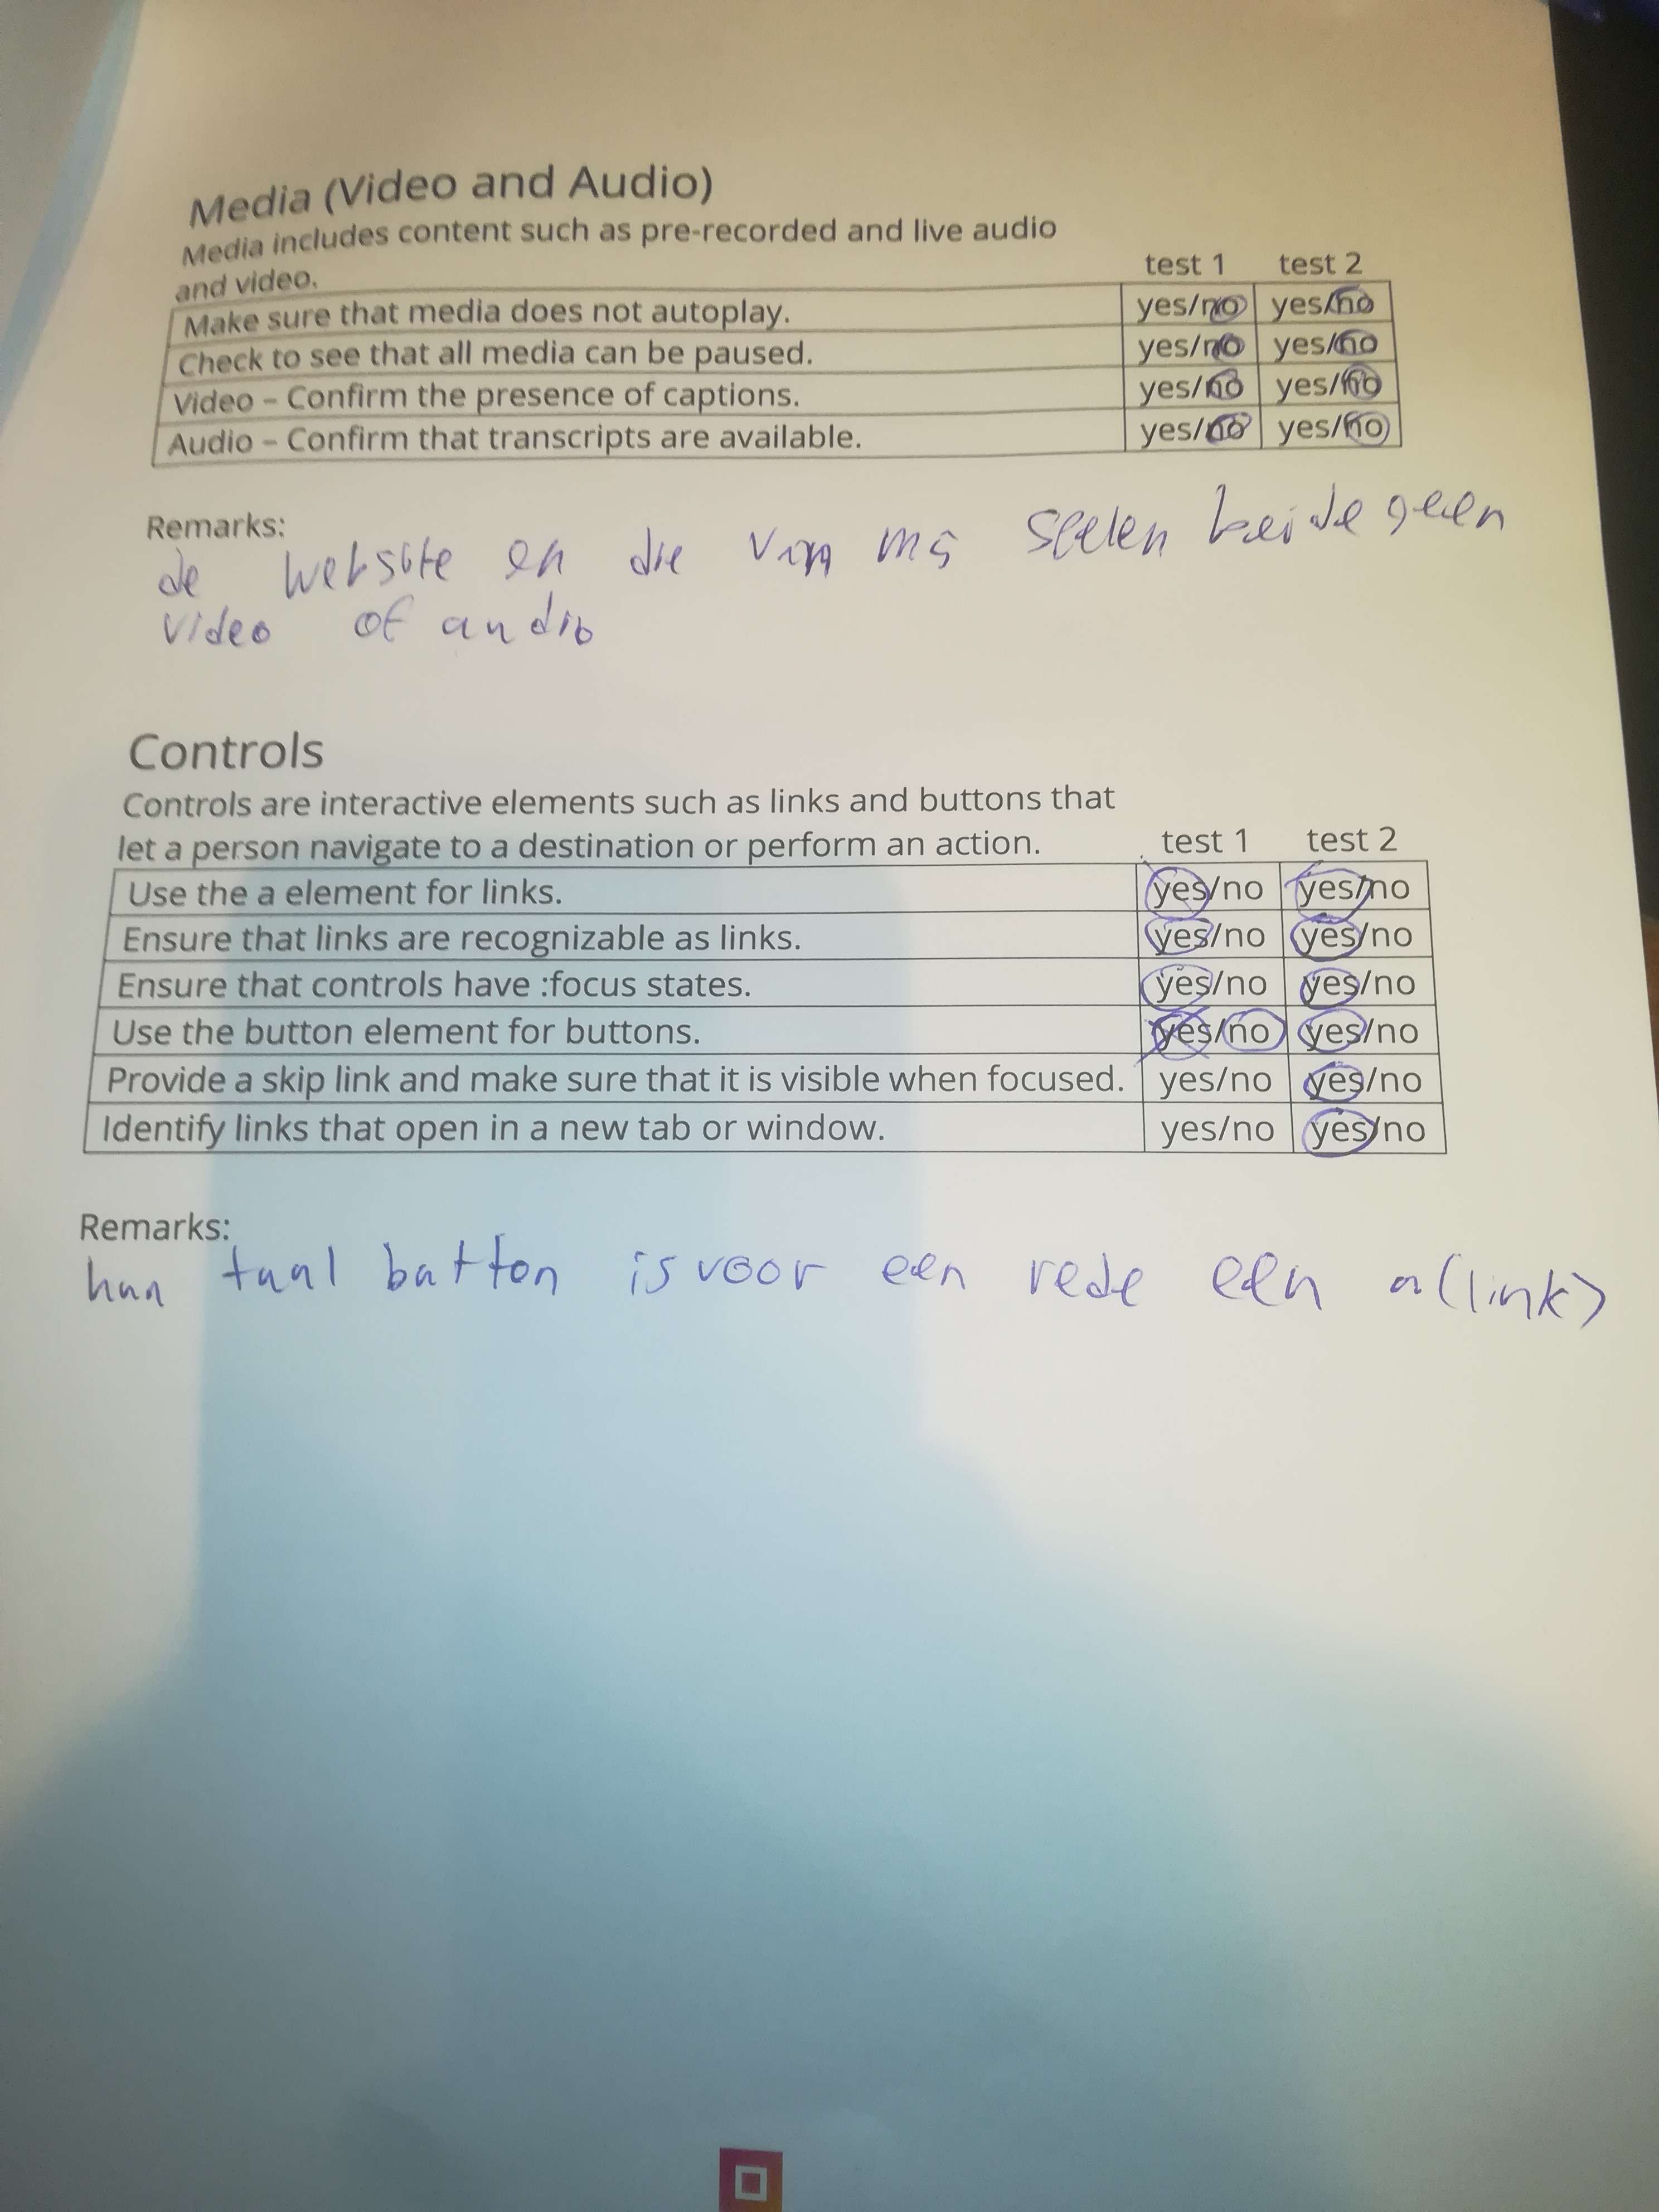 Media (Video and Audio)
Media includes content such as pre-recorded and live audio
and video.
test 1 test 2
Make sure that media does not autoplay. yes/no yes/no
Check to see that all media can be paused. yes/no yes/no
Video – Confirm the presence of captions. yes/no yes/no
Audio – Confirm that transcripts are available. yes/no yes/no
Remarks:
de website en die van beide geen
video of audio
Controls
Controls are interactive elements such as links and buttons that
let a person navigate to a destination or perform an action. test 1 test 2
Use the a element for links. yes/no yes/no
Ensure that links are recognizable as links. yes/no yes/no
Ensure that controls have :focus states. yes/no yes/no
Use the button element for buttons. yes/no yes/no
Provide a skip link and make sure that it is visible when focused. yes/no yes/no
Identify links that open in a new tab or window. yes/no yes/no
Remarks:
hun taal button is voor een rede een a(link)